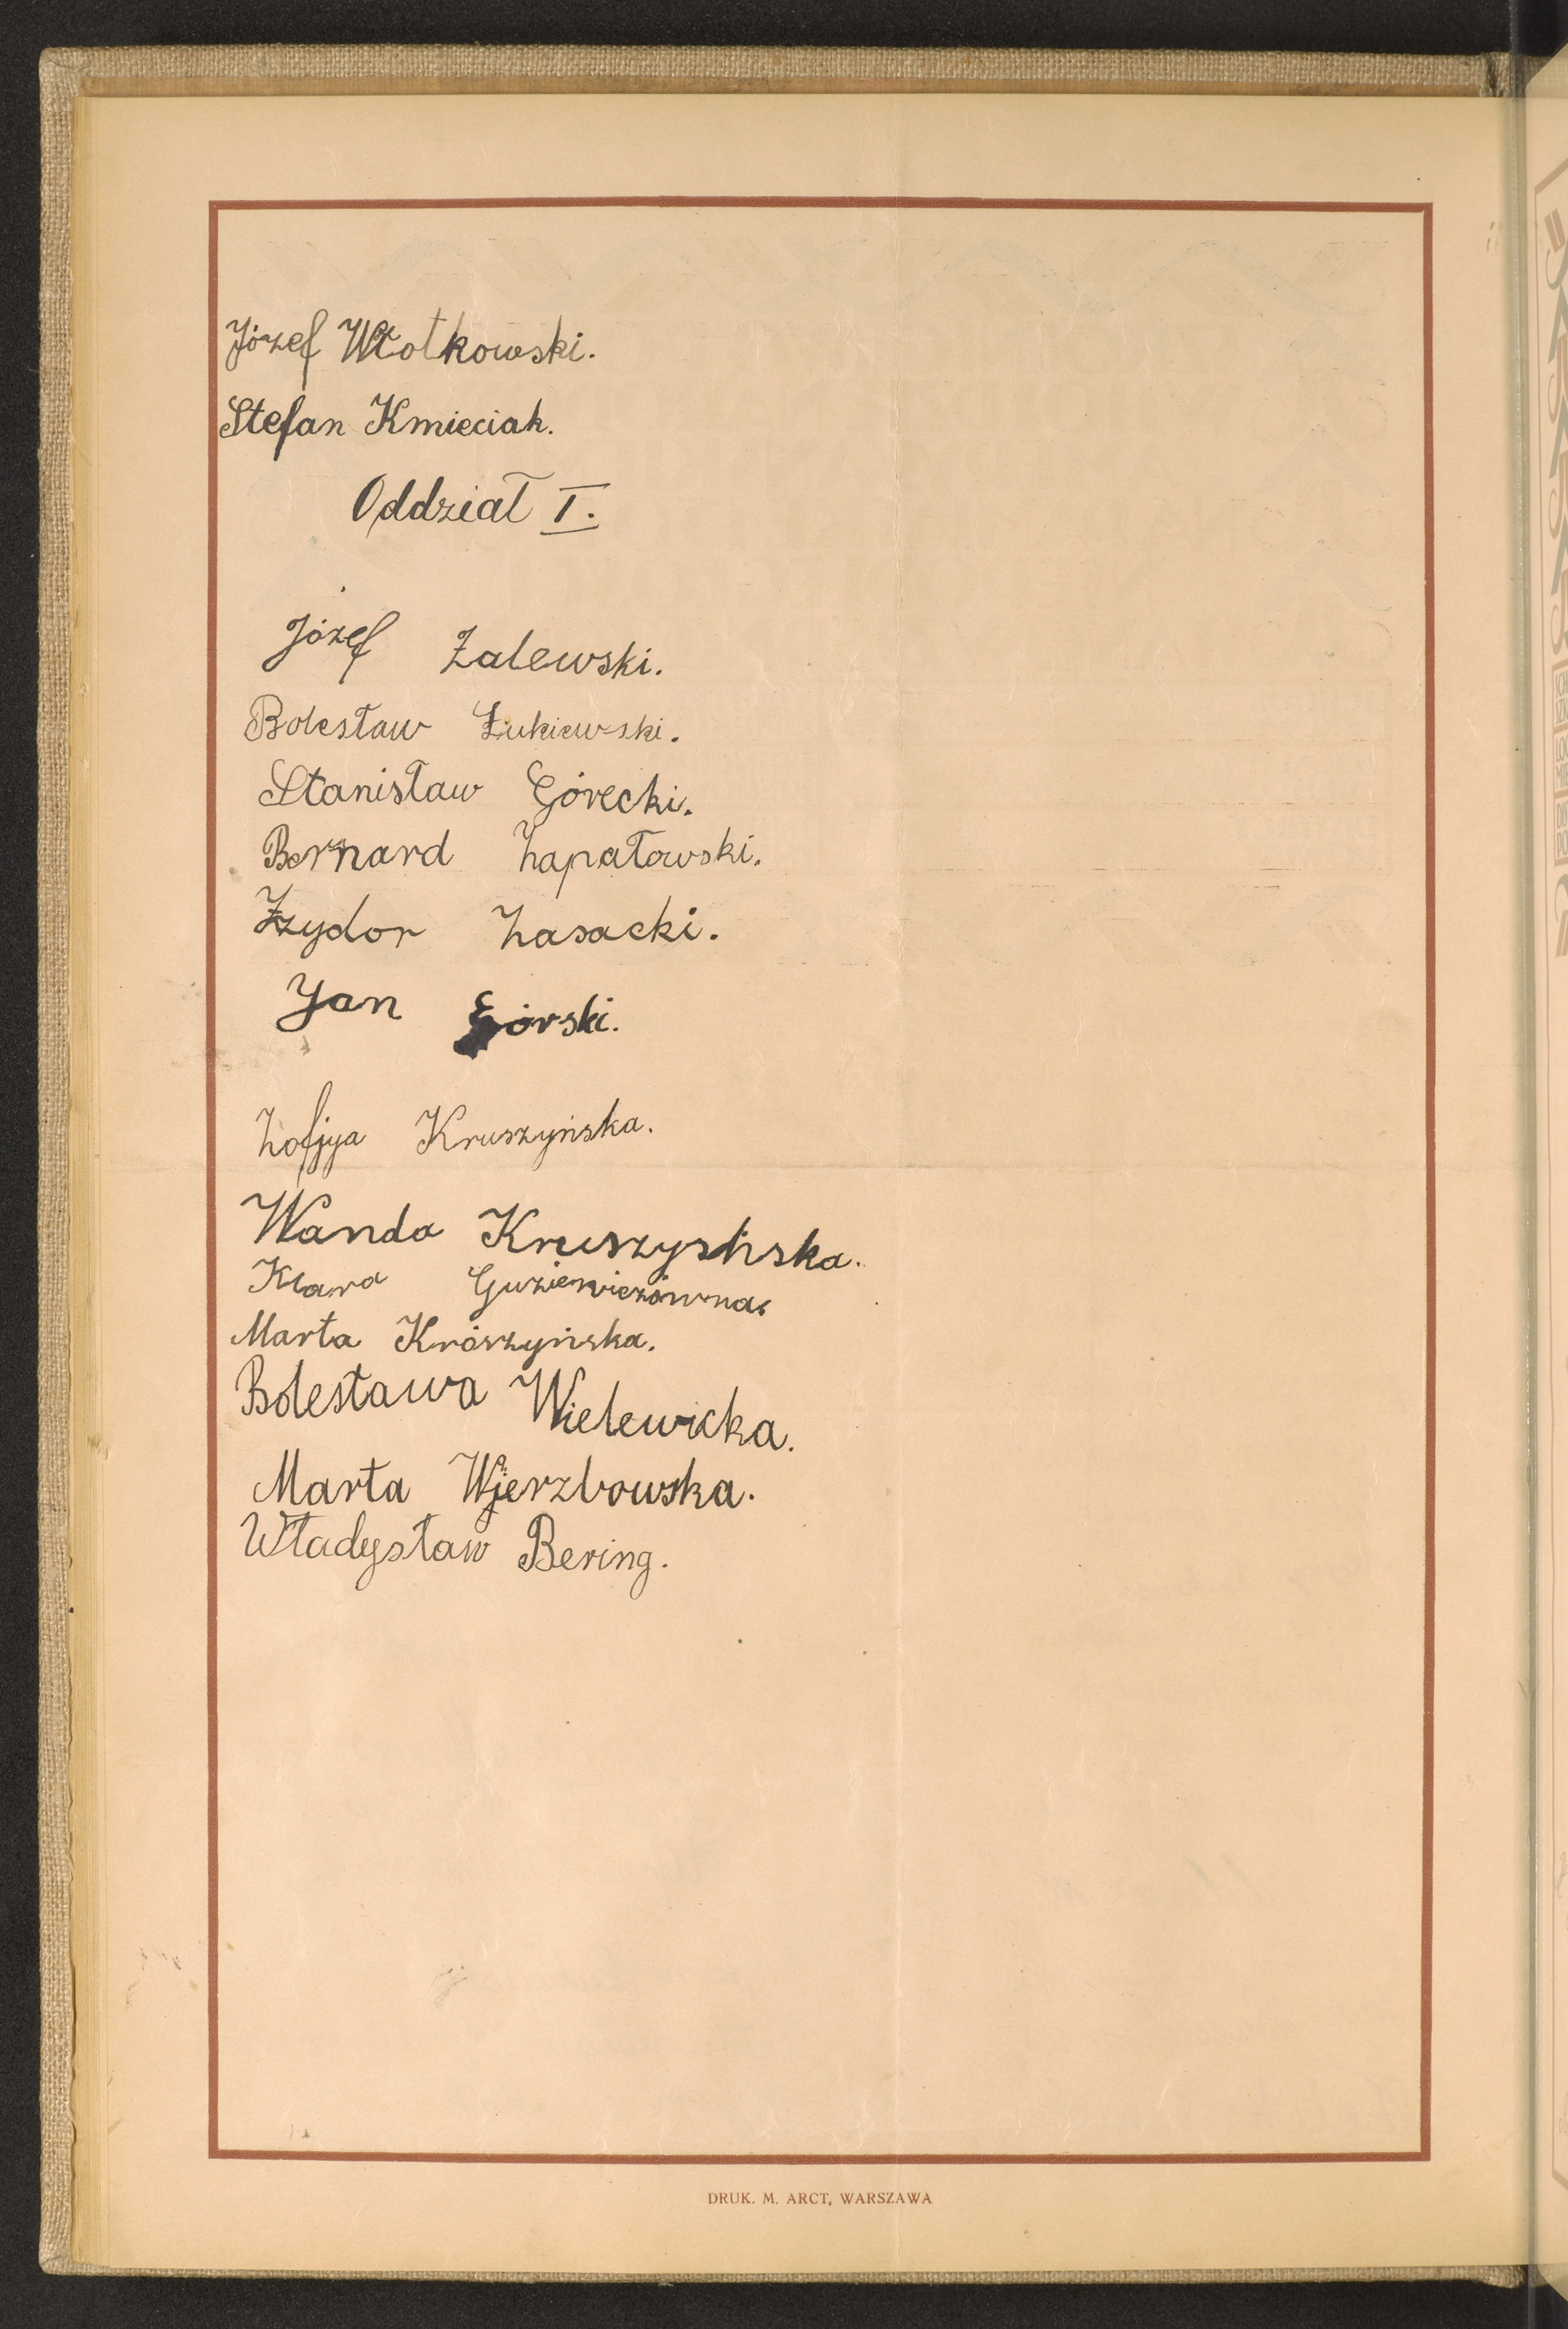 Józef Wtotkowski.
Stefan Kmieciak.
Oddział I.
Józef Zalewski.
Bolesław Żukiewski.
Stanisław Górecki.
Bernard Zapałowski.
Izydor Zasacki.
Jan Górski.
Zofjya Kruszyńska.
Wanda Kruszyńska.
Klara Guziewiczówna.
Marta Krószyńska.
Bolesława Wielewicka.
Marta Wjerzbowska.
Władysław Bering.
DRUK. M. ARCT, WARSZAWA